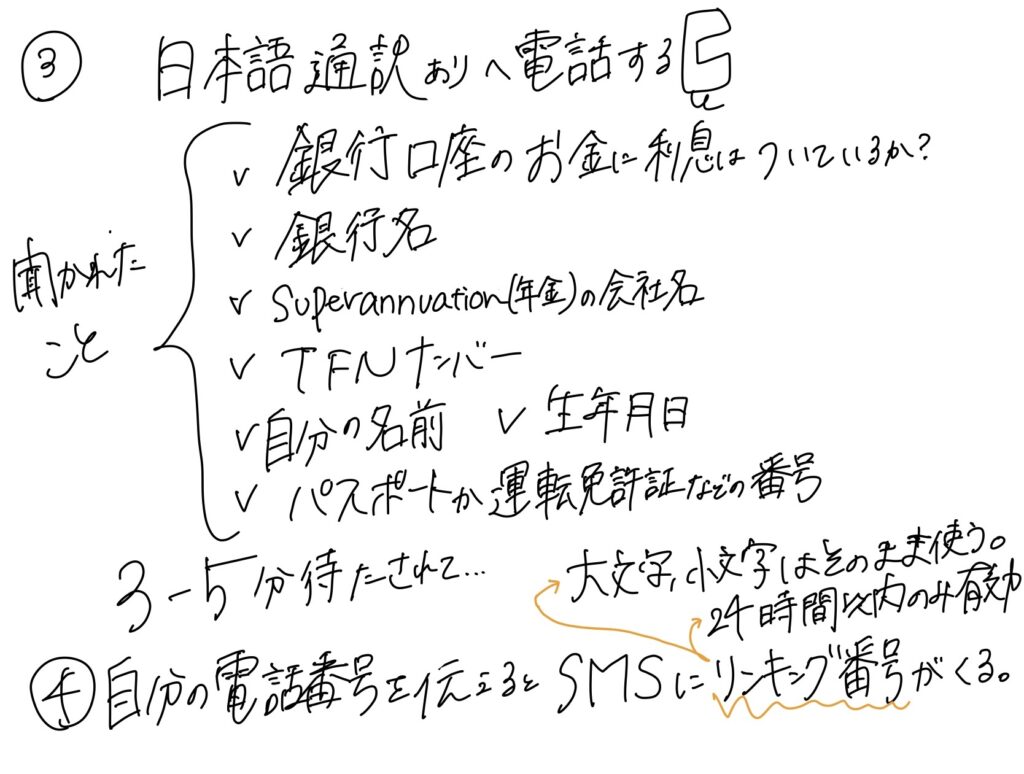 ③ 日本語通訳ありへ電話する
聞かれたこと
✓ 銀行口座のお金に利息はついているか?
✓ 銀行名
✓ Superannuation(年金)の会社名
✓ TFNナンバー
✓ 自分の名前 ✓ 生年月日
✓ パスポートか運転免許証などの番号
3-5分待たされて…
大文字,小文字はそのまま使う。
24時間以内のみ有効
④ 自分の電話番号を伝えるとSMSにリンキング番号がくる。